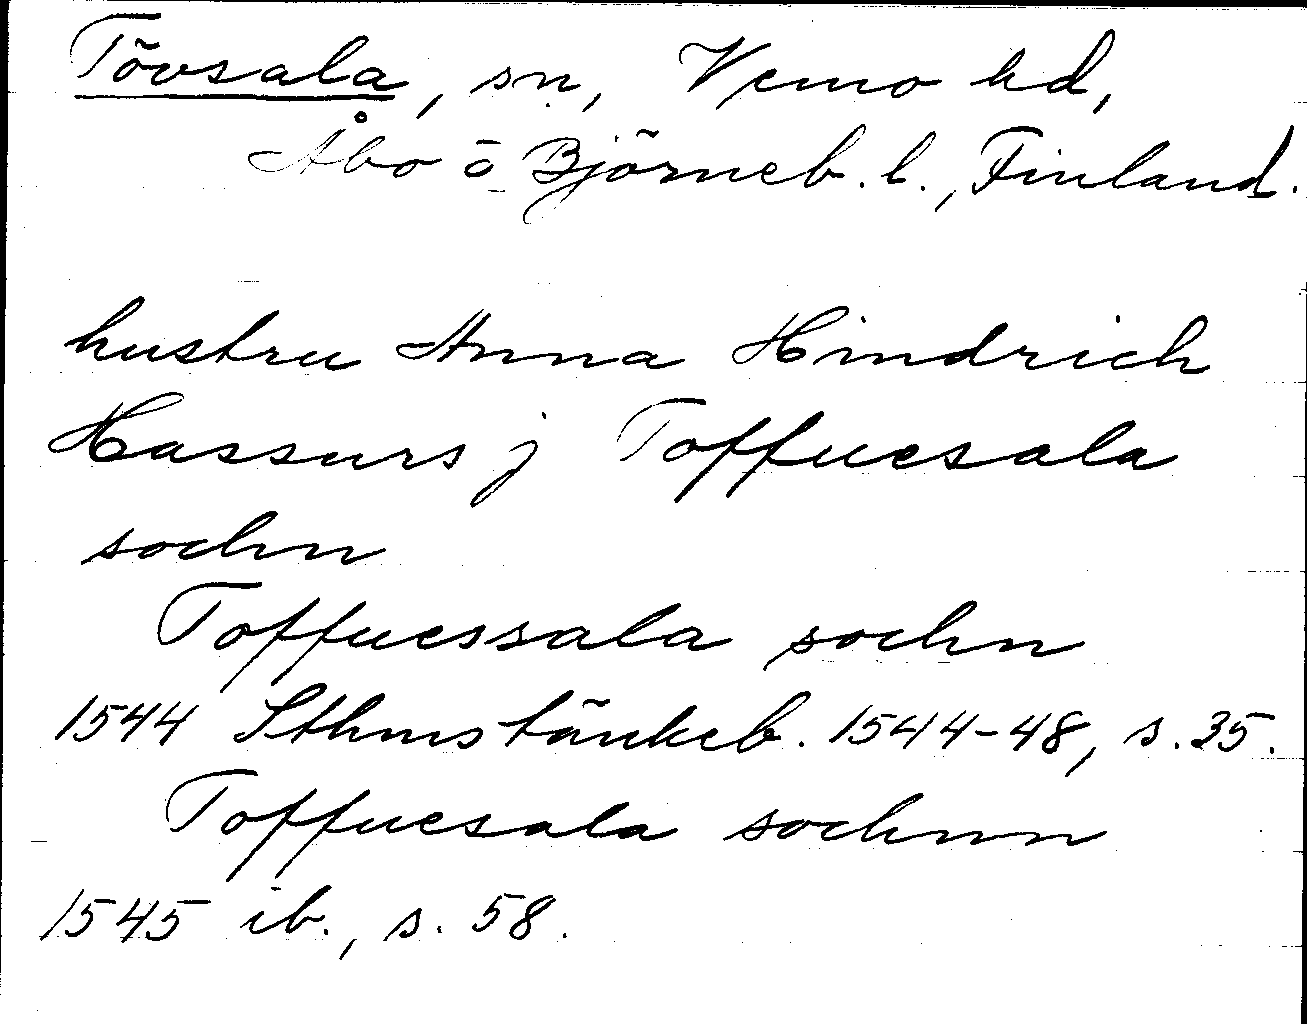 Tövsala, sn, Vemo hd,
Åbo o Björneb. l., Finland.
hustru Anna Hindrich
Hassurs j Toffuesala
sochn
Toffuessala sochn
1544 Sthms tänkeb. 1544-48, s. 35.
Toffuesala sochnn
1545 ib., s. 58.